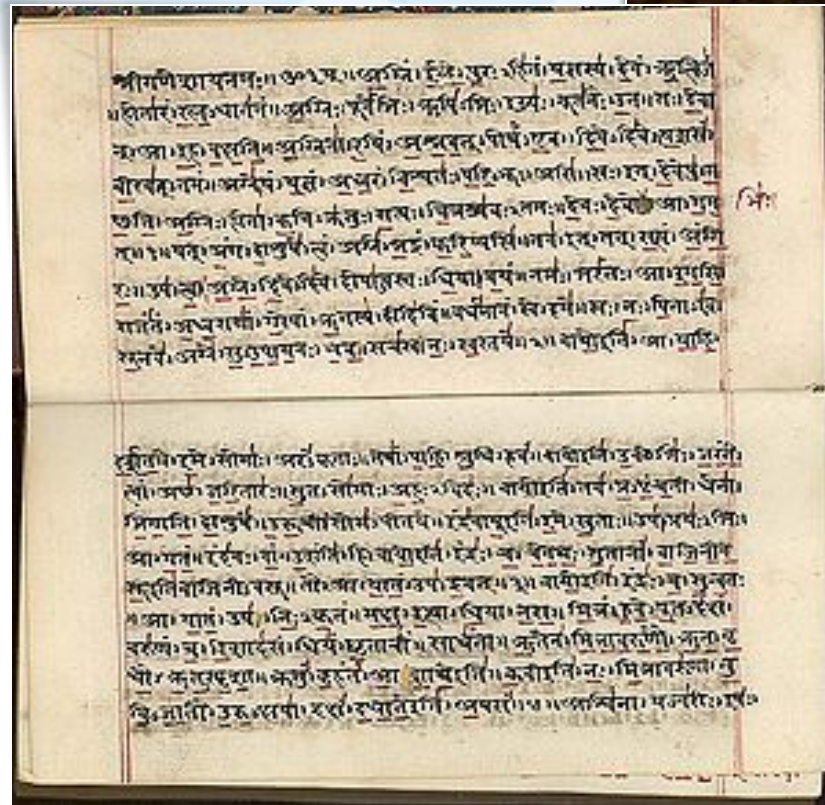 श्रीगणेशायनमः॥ॐ३म्॥अग्निं।ईळे।पुरःऽहितं।यज्ञस्य।देवं।ऋत्विजं
॥होतारं।रत्नऽधातमं॥अग्निः।पूर्वेभिः।ऋषिऽभिः।ईड्यः।नूतनैः।उत॥सः।देवा
न्।आ।इह।वक्षति॥अग्निना।रयिं।अश्नवत्।पोषं।एव।दिवेऽदिवे॥यशसं
वीरवत्ऽतमं॥अग्ने।यं।यज्ञं।अध्वरं।विश्वतः।परिऽभूः।असि॥सः।इत्।देवेषु।ग
च्छति॥अग्निः।होता।कविऽक्रतुः।सत्यः।चित्रश्रवःऽतमः॥देवः।देवे।आ।गम
भिः
त्॥१॥यत्।अंग।दाशुषे।त्वं।अग्ने।भद्रं।करिष्यसि॥तव।इत्।तत्।सत्यं।अंगि
रः॥उप।त्वा।अग्ने।दिवेऽदिवे।दोषाऽवस्तः।धिया।वयं॥नमः।भरंतः।आ।इमसि
राजंतं।अध्वराणां।गोपां।ऋतस्य।दीदिविं॥वर्धमानं।स्वे।दमे॥सः।नः।पिताऽइव
सूनवे।अग्ने।सुऽउपायनः।भव॥सचस्व।नः।स्वस्तये॥२॥वायोइति।आ।याहि।
दर्शत।इमे।सोमाः।अरंऽकृताः॥तेषां।पाहि।श्रुधि।हवं॥वायोइति।उक्थेभिः।जरंते
त्वां।अच्छ।जरितारः॥सुतऽसोमाः।अहःऽविदः॥वायोइति।तव।प्रऽपृंचती।धेना।
जिगाति।दाशुषे॥उरूची।सोमऽपीतये॥इंद्रवायूइति।इमे।सुताः॥उप।प्रयःऽभिः।
आ।गतं॥इंदवः।वां।उशंति।हि॥वायोइति।इंद्रः।च।चेतथः।सुतानां।वाजिनीव
सूइतिवाजिनीऽवसू॥तौ।आ।यातं।उप।द्रवत्॥३॥वायोइति।इंद्रः।च।सुन्वतः
॥आ।यातं।उप।निःऽकृतं॥मक्षु।इत्था।धिया।नरा॥मित्रं।हुवे।पूतऽदक्षं।
वरुणं।च।रिशादसं॥धियं।घृताचीं।साधंता॥ऋतेन।मित्रावरुणौ।ऋतऽवृ
धौ।ऋतऽस्पृशा॥क्रतुं।बृहंतं।आशाथेइति॥कवीइति।नः।मित्रावरुणा।तु
विऽजातौ।उरुऽक्षया॥दक्षं।दधातेइति।अपसं॥४॥अश्विना।यज्वरीः।इषः।